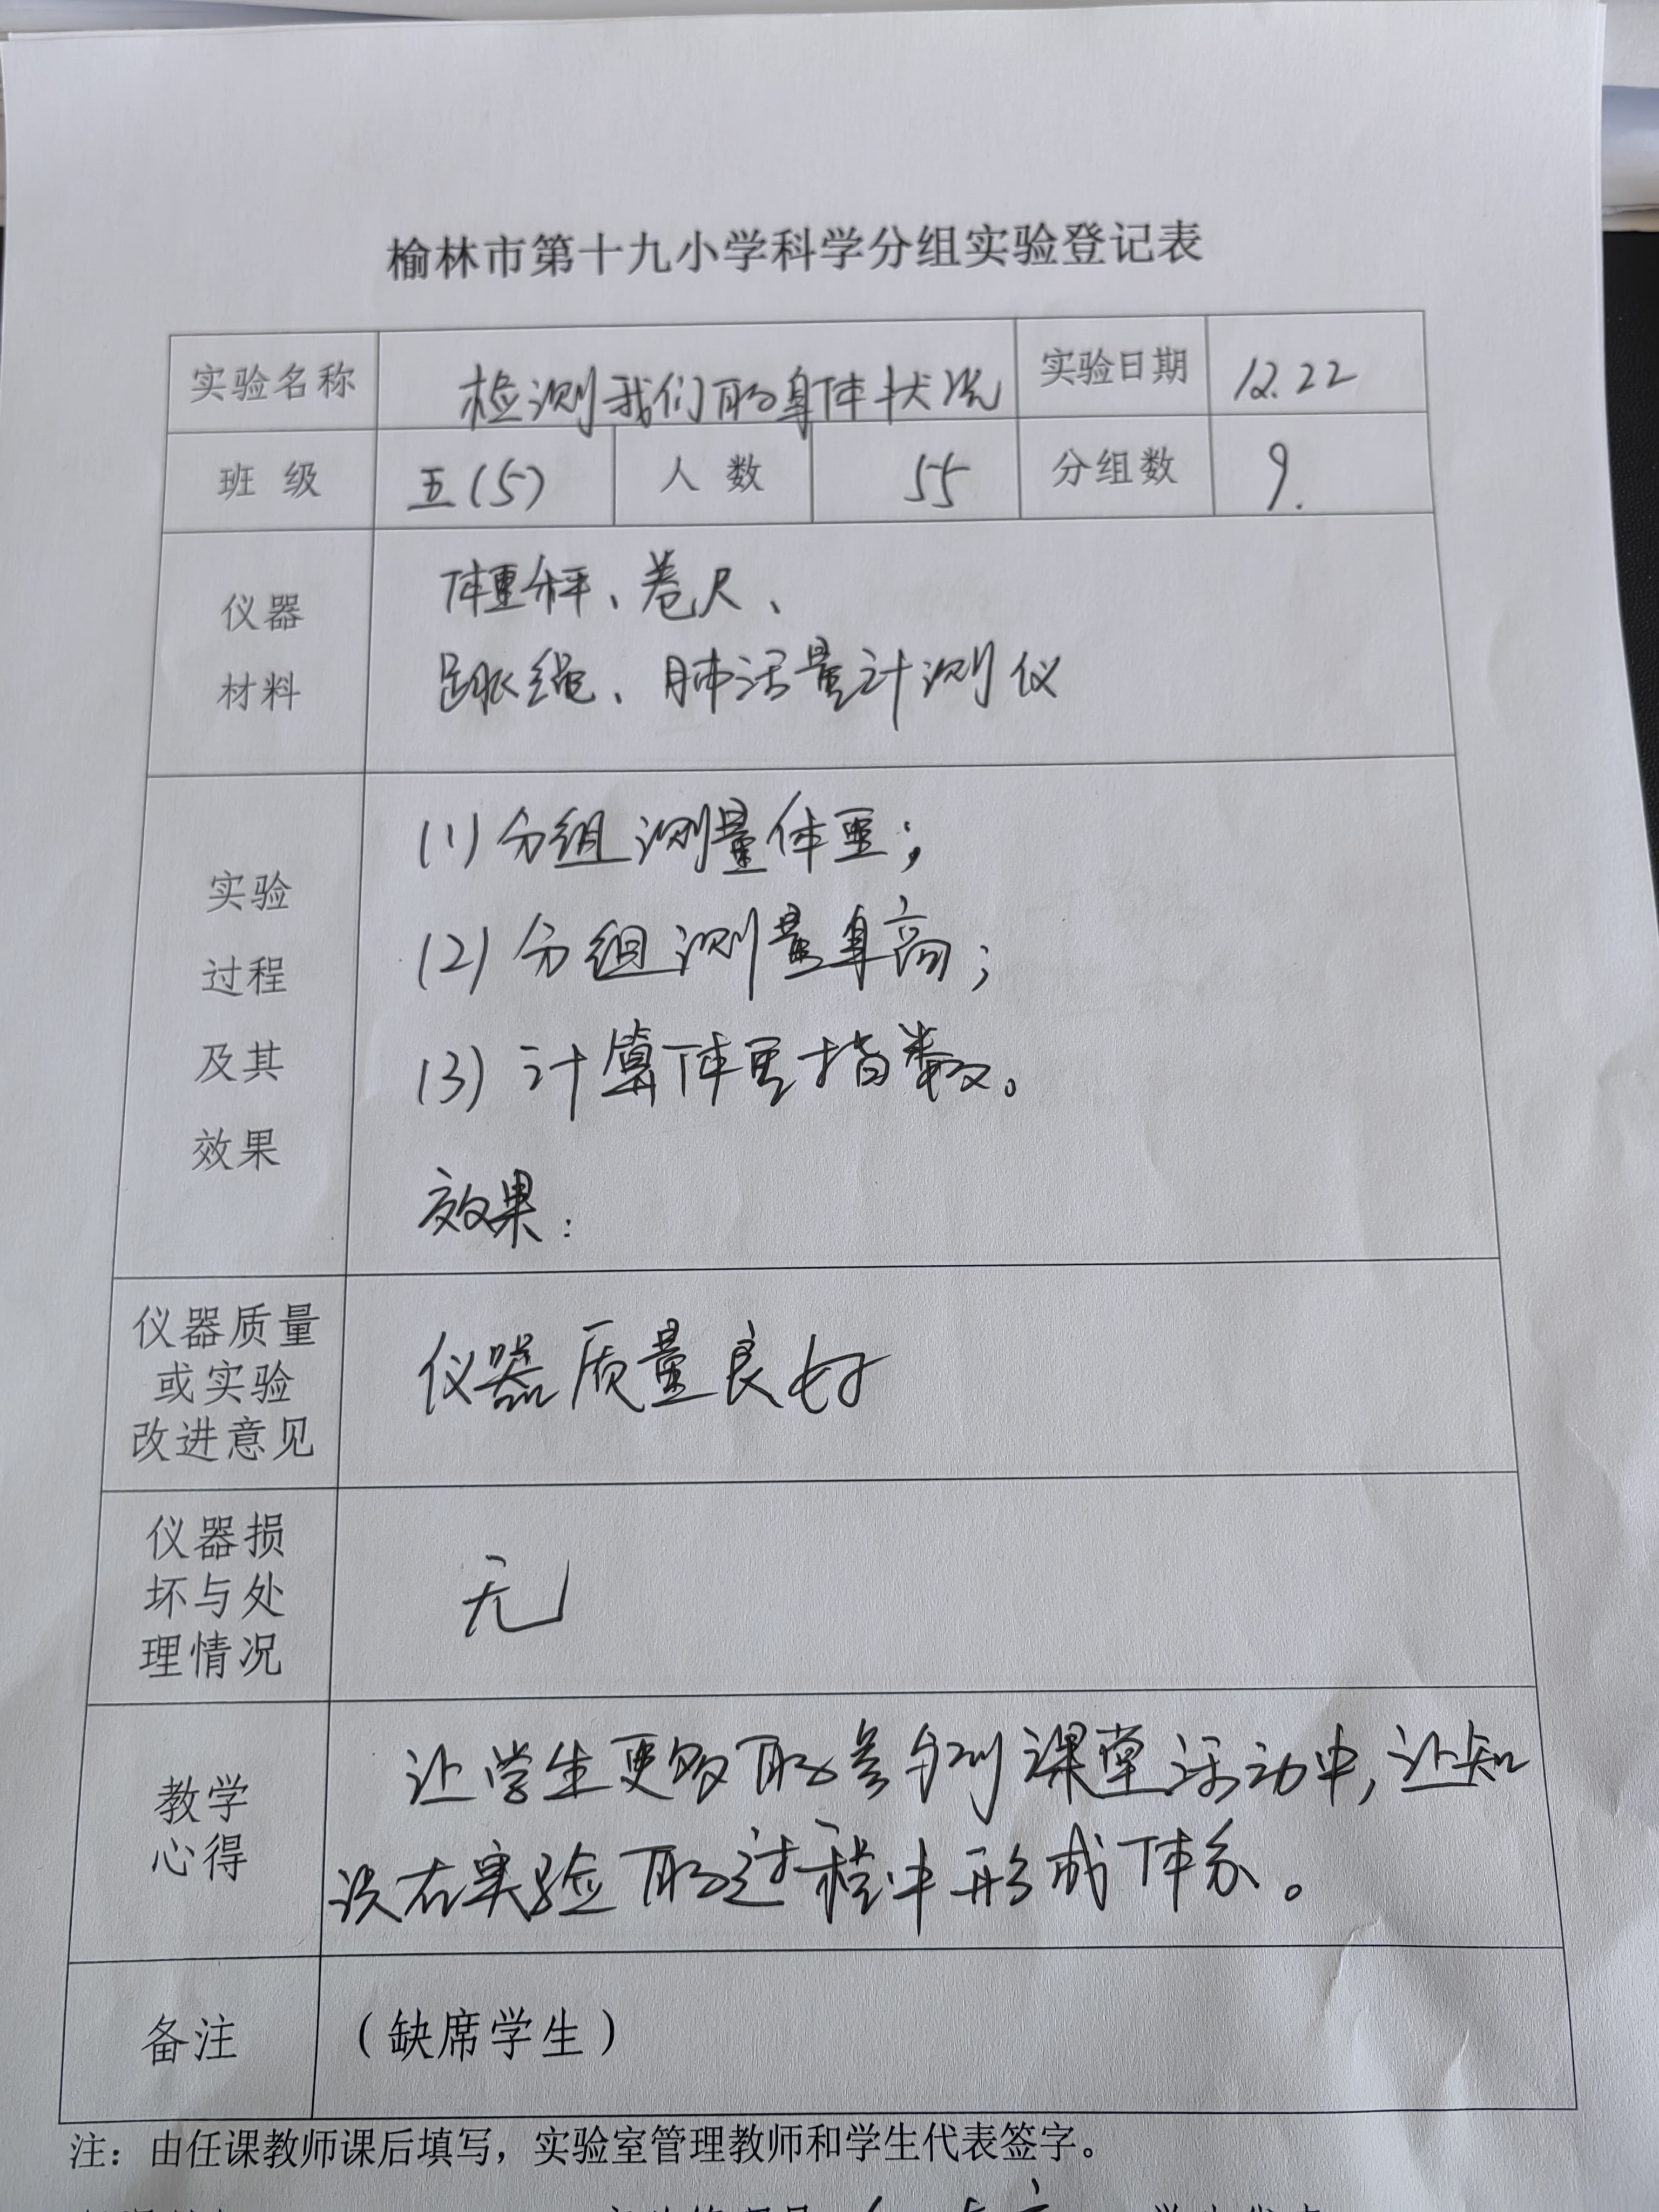 榆林市第十九小学科学分组实验登记表
实验名称 检测我们的身体状况 实验日期 12.22
班 级 五(5) 人 数 55 分组数 9.
仪器
材料
体重秤、卷尺、
跳绳、肺活量计测仪
实验
过程
及其
效果
(1)分组测量体重;
(2)分组测量身高;
(3)计算体重指数。
效果:
仪器质量
或实验
改进意见
仪器质量良好
仪器损
坏与处
理情况
无
教学
心得
让学生更多的参与到课堂活动中,让知
识在实验的过程中形成体系。
备注 (缺席学生)
注:由任课教师课后填写,实验室管理教师和学生代表签字。